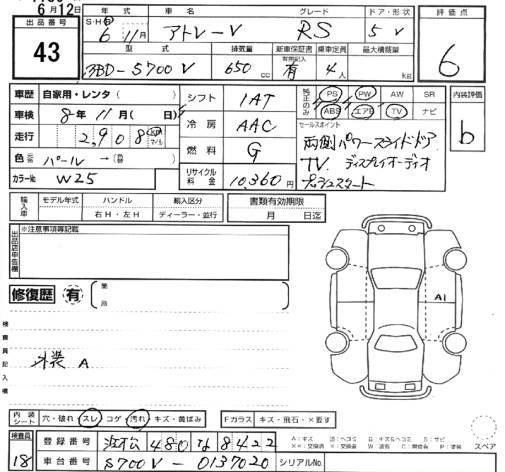 6月12日
出品番号
43
年式 車名 グレード ドア・形状 評価点
S・H・R
6年 11月 アトレーV RS 5 V
6
型式 排気量 新車保証書 乗車定員 最大積載量
3BD-S700V 650cc 有 4人 kg
車歴 自家用・レンタ( )
車検 8年 11月( 日)
走行 2,908
色 パール → (色替)
カラーNo W25
シフト 1AT
冷房 AAC
燃料 G
リサイクル料金 10,360円
純正のみ PS PW AW SR
ABS エアB TV ナビ
内装評価
b
セールスポイント
両側パワースライドドア
TV ディスプレイオーディオ
プッシュスタート
輸入車 モデル年式 ハンドル 輸入区分
右H・左H ディーラー・並行
書類有効期限
月 日迄
出品店申告欄
※注意事項等記載
修復歴 有
箇所
検査員記入欄
外装 A
A1
内装シート 穴・破れ・スレ・コゲ・汚れ・キズ・黄ばみ
Fガラス キズ・飛石・×要す
スペア
検査員
18
登録番号 浜松 480 な 8422
車台番号 S700V-0137020
シリアルNo.